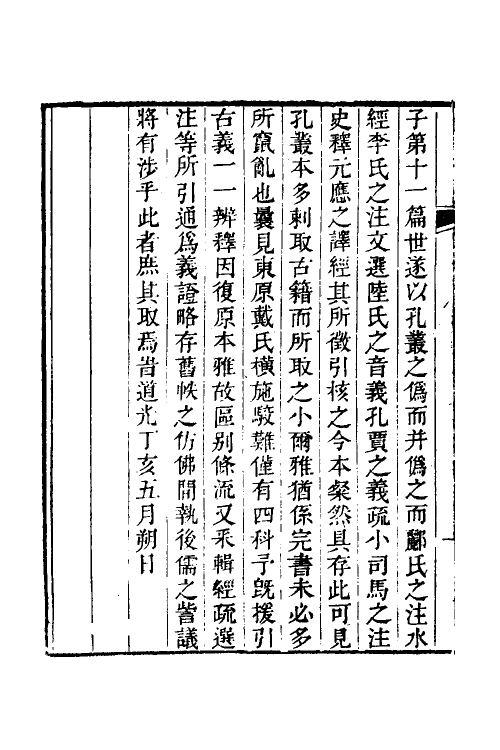 子第十一篇世遂以孔叢之僞而并僞之而酈氏之注水
經李氏之注文選陸氏之音義孔賈之義疏小司馬之注
史釋元應之譯經其所徵引核之今本粲然具存此可見
孔叢本多刺取古籍而所取之小爾雅猶係完書未必多
所竄亂也曩見東原戴氏橫施駮難僅有四科予旣援引
古義一一辨釋因復原本雅故區别條流又釆輯經疏選
注等所引通爲義證略存舊帙之仿佛間執後儒之訾議
將有涉乎此者庶其取焉旹道光丁亥五月朔日